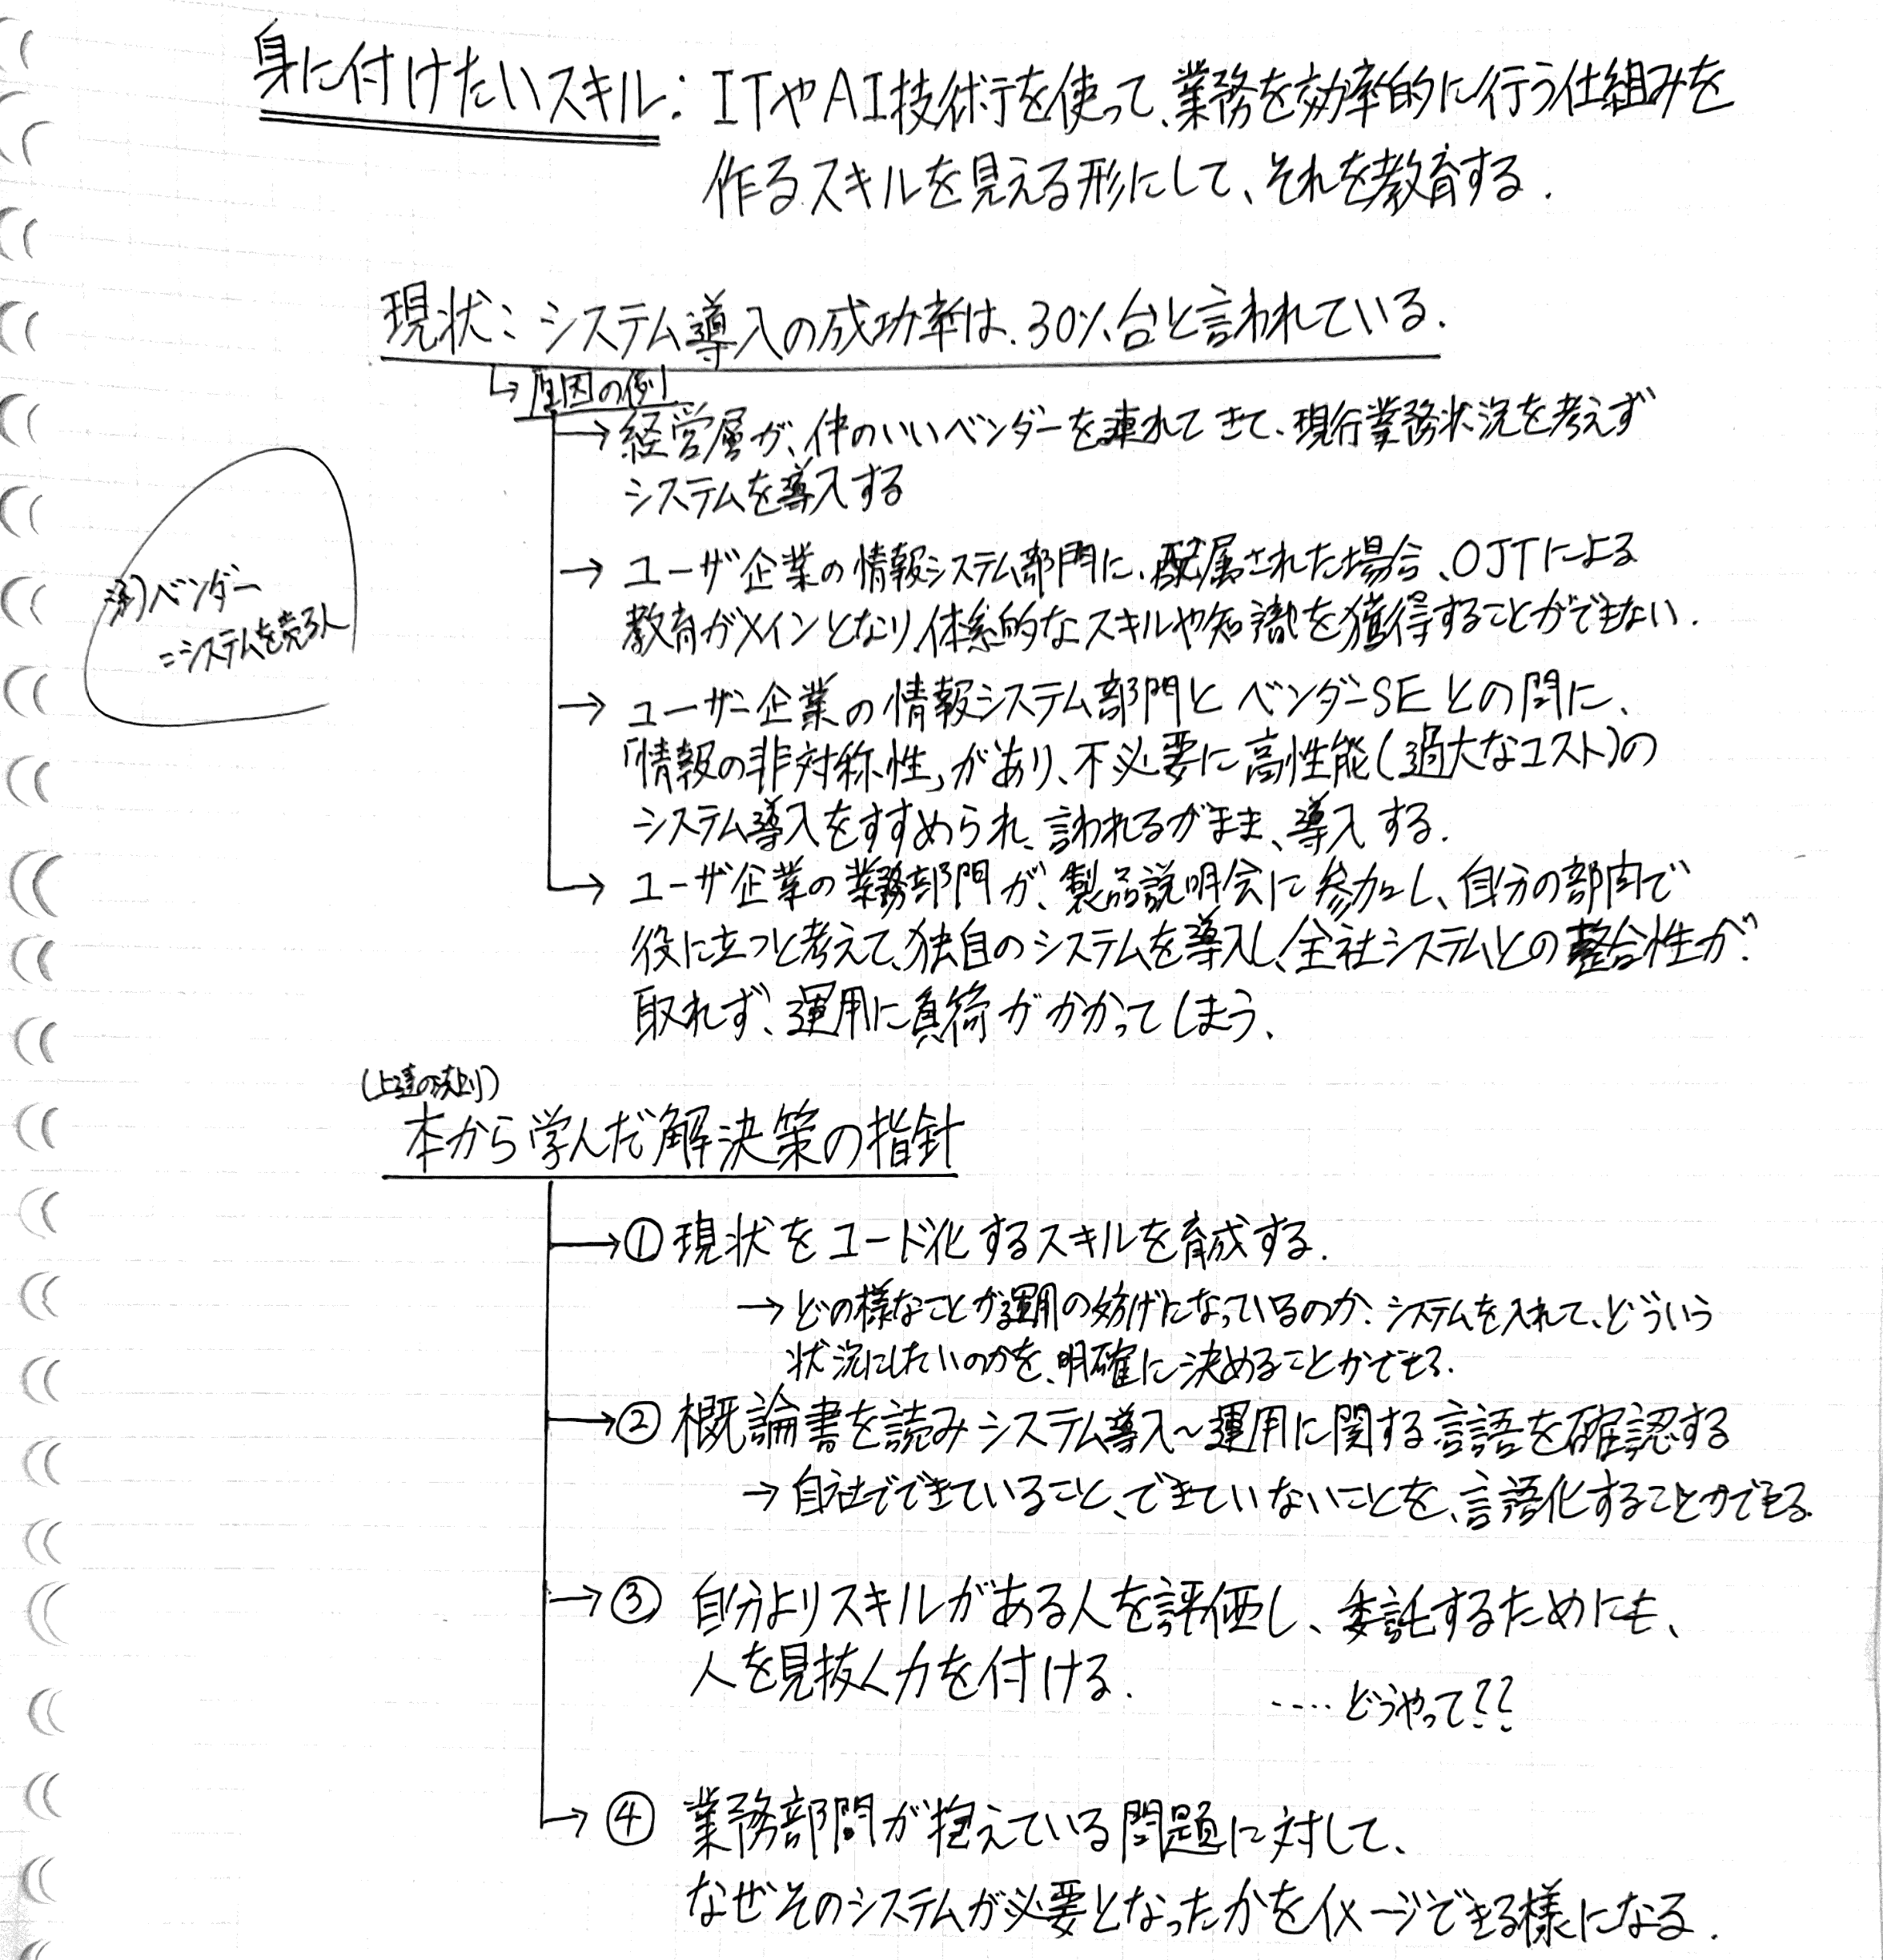 身に付けたいスキル：ITやAI技術を使って、業務を効率的に行う仕組みを
作るスキルを見える形にして、それを教育する.
現状：システム導入の成功率は、30%台と言われている.
↳原因の例
→経営層が、仲のいいベンダーを連れてきて、現行業務状況を考えず
システムを導入する
→ユーザ企業の情報システム部門に、配属された場合、OJTによる
教育がメインとなり、体系的なスキルや知識を獲得することができない.
注)ベンダー
=システムを売る人
→ユーザー企業の情報システム部門とベンダーSEとの間に、
「情報の非対称性」があり、不必要に高性能(過大なコスト)の
システム導入をすすめられ、言われるがまま、導入する.
→ユーザ企業の業務部門が、製品説明会に参加し、自分の部内で
役に立つと考えて、独自のシステムを導入し、全社システムとの整合性が
取れず、運用に負荷がかかってしまう、
(上達の法則)
本から学んだ解決策の指針
→①現状をコード化するスキルを育成する.
→どの様なことが運用の妨げになっているのか、システムを入れて、どういう
状況にしたいのかを、明確に決めることができる.
→②概論書を読みシステム導入～運用に関する言語を確認する
→自社でできていること、できていないことを、言語化することができる.
→③ 自分よりスキルがある人を評価し、委託するためにも、
人を見抜く力を付ける.
‥‥どうやって??
→④ 業務部門が抱えている問題に対して、
なぜそのシステムが必要となったかをイメージできる様になる.